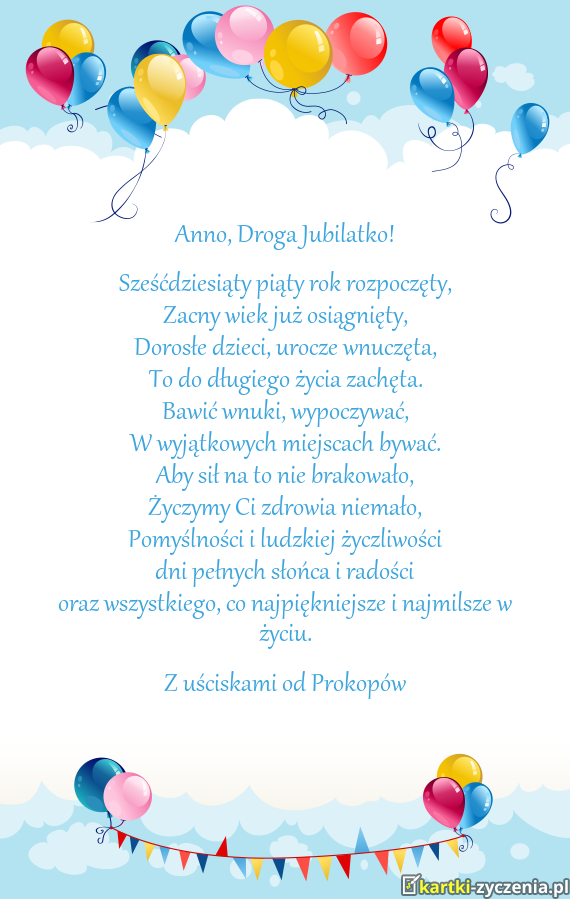 Anno, Droga Jubilatko!
Sześćdziesiąty piąty rok rozpoczęty,
Zacny wiek już osiągnięty,
Dorosłe dzieci, urocze wnuczęta,
To do długiego życia zachęta.
Bawić wnuki, wypoczywać,
W wyjątkowych miejscach bywać.
Aby sił na to nie brakowało,
Życzymy Ci zdrowia niemało,
Pomyślności i ludzkiej życzliwości
dni pełnych słońca i radości
oraz wszystkiego, co najpiękniejsze i najmilsze w
życiu.
Z uściskami od Prokopów
kartki-zyczenia.pl